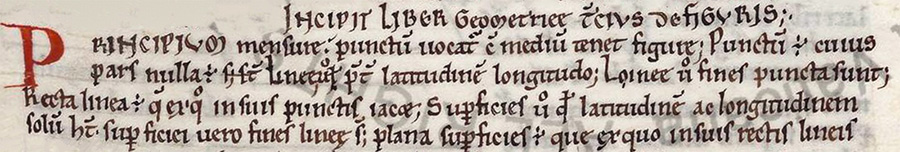 INCIPIT LIBER Geometrice t̄cius DE FIGURIS;
PRINCIPIUM mensure. punctū uocat᷑ c̄ mediū tenet figure; Punctū ÷ cuius
pars nulla ÷ latitudinē longitudo; Linee ū fines puncta sunt;
Recta linea ÷ in suis punctis iacet; Supficies ū latitudinē ac longitudinem
solū ht̄. supficiei uero fines lineę s̄; plana supficies ÷ que ex quo in suis rectis lineis